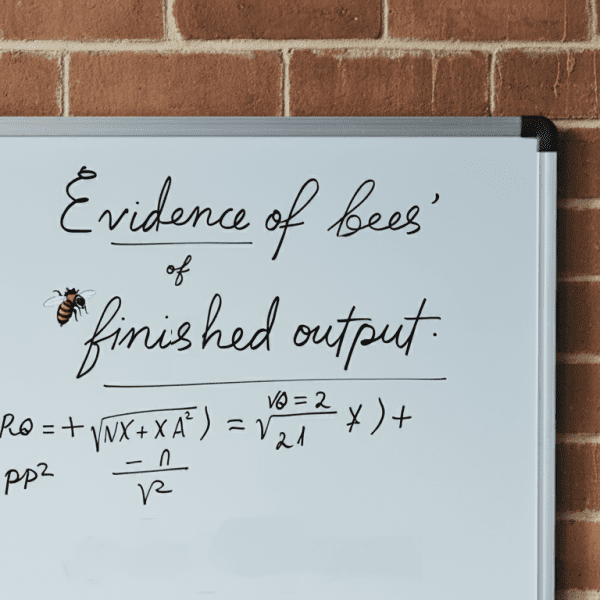 Evidence of bees'
of
finished output.
RQ = + √NX + XA²) = √VQ = 2 / 21 X ) +
PP² - n / √2